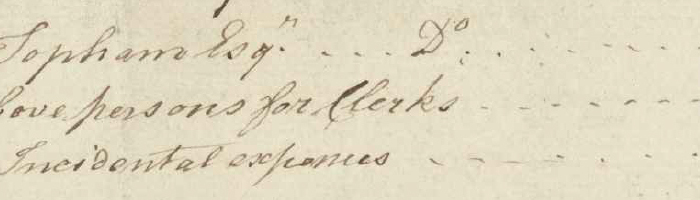 Topham Esqr. ... Do.
persons for Clerks
Incidental expences